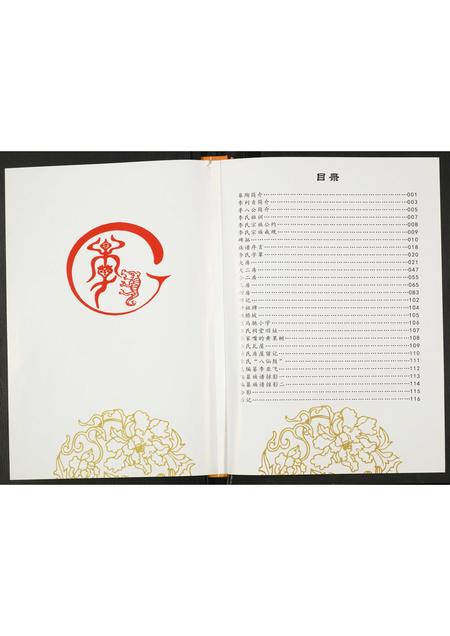 目录
皋陶简介 001
李利贞简介 003
李八公简介 005
李氏祖训 007
李氏宗族公约 008
李氏宗族戒规 009
碑拓 010
族谱序言 018
李氏字辈 020
大房 021
大二房 047
二房 055
房 065
房 083
记 102
祖碑 104
桥坡 105
马驰小学 106
氏祠堂旧址 107
家嘴的黄果树 108
氏瓦屋 109
氏房屋留记 110
氏“八仙银” 111
编纂李亚飞 112
纂族谱掠影一 113
纂族谱掠影二 114
影 115
记 116